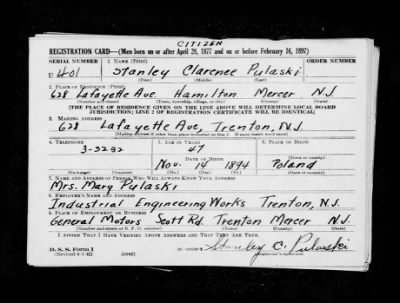 CITIZEN
REGISTRATION CARD—(Men born on or after April 28, 1877 and on or before February 16, 1897)
SERIAL NUMBER 1. NAME (Print) ORDER NUMBER
U 401 Stanley Clarence Pulaski
(First) (Middle) (Last)
2. PLACE OF RESIDENCE (Print)
628 Lafayette Ave. Hamilton Mercer N.J.
(Number and street) (Town, township, village, or city) (County) (State)
[THE PLACE OF RESIDENCE GIVEN ON THE LINE ABOVE WILL DETERMINE LOCAL BOARD
JURISDICTION; LINE 2 OF REGISTRATION CERTIFICATE WILL BE IDENTICAL]
3. MAILING ADDRESS
628 Lafayette Ave, Trenton, N.J.
[Mailing address if other than place indicated on line 2. If same insert word same]
4. TELEPHONE 5. AGE IN YEARS 6. PLACE OF BIRTH
3-5292 47
DATE OF BIRTH
Nov. 14 1894 Poland
7. NAME AND ADDRESS OF PERSON WHO WILL ALWAYS KNOW YOUR ADDRESS
Mrs. Mary Pulaski
8. EMPLOYER'S NAME AND ADDRESS
Industrial Engineering Works Trenton, N.J.
9. PLACE OF EMPLOYMENT OR BUSINESS
General Motors Scott Rd. Trenton Mercer N.J.
(Number and street or R. F. D. number) (Town) (County) (State)
I AFFIRM THAT I HAVE VERIFIED ABOVE ANSWERS AND THAT THEY ARE TRUE.
D. S. S. Form 1
Stanley C. Pulaski